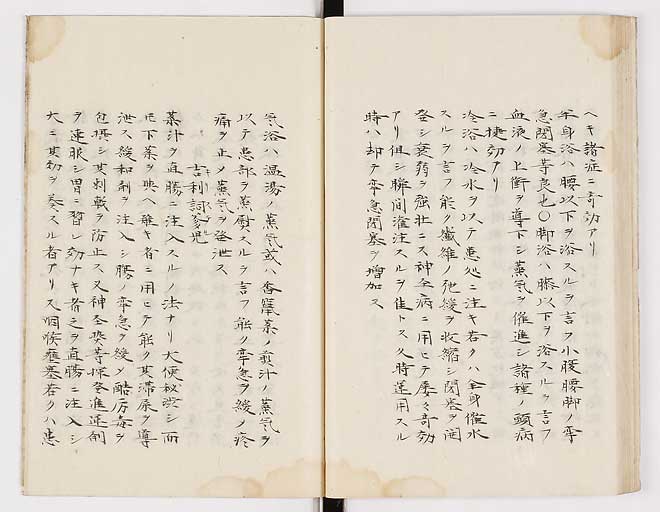 ヘキ諸症ニ奇効アリ
半身浴ハ腰以下ヲ浴スルヲ言フ小腹腰脚ノ攣
急閉塞等良也〇脚浴ハ膝以下ヲ浴スルヲ言フ
血液ノ上衝ヲ導下シ蒸気ヲ催進シ諸種ノ頭病
ニ捷効アリ
冷浴ハ冷水ヲ以テ患処ニ注キ若クハ全身催水
スルヲ言フ能ク繊維ノ弛緩ヲ収縮シ閉塞ヲ開
発シ衰弱ヲ強壮ニス神全病ニ用ヒテ屡々奇効
アリ但シ瞬間潅注スルヲ佳トス久時運用スル
時ハ却テ攣急閉塞ヲ増加ス
気浴ハ温湯ノ蒸気或ハ香竄薬ノ煎汁ノ蒸気ヲ
以テ患部ヲ蒸熨スルヲ言フ能ク攣急ヲ緩メ疼
痛ヲ止メ蒸気ヲ発泄ス
吉利詞篤児
薬汁ヲ直腸ニ注入スルノ法ナリ大便秘渋シ而
下薬ヲ与ヘ難キ者ニ用ヒテ能ク其滞屎ヲ導
泄ス緩和剤ヲ注入シ腸ノ攣急ヲ緩メ酷厉毒ヲ
包摂シ其刺戟ヲ防止ス又神全衝動等揮発進
ヲ連服シ胃ニ習レ効ナキ者之ヲ直腸ニ注入シ
大ニ其効ヲ奏スル者アリ又咽喉壅塞若クハ患